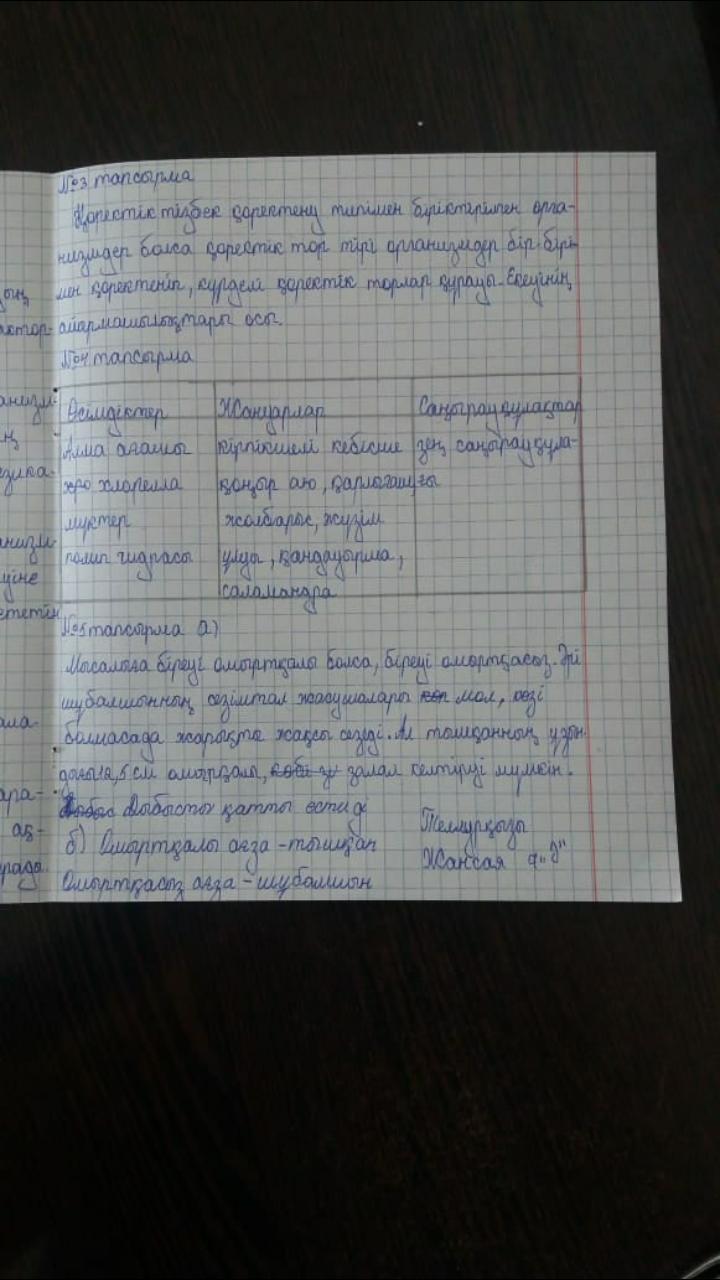 №3 тапсырма
Қоректік тізбек қоректену типімен біріктірілген орга-
низмдер болса қоректік тор тірі организмдер бір-бірі-
мен қоректеніп, күрделі қоректік торлар құрауы. Екеуінің
айырмашылықтары осы.
№4 тапсырма
Өсімдіктер Жануарлар Саңырауқұлақтар
Алма ағашы кірпікшелі кебісше зең саңырауқұла-
хро хлорелла қоңыр аю, қарлығаш ғы
мүктер жолбарыс, жүзім
полип гидрасы ұлуы, қандауырша,
саламандра
№5 тапсырма а)
Мысалыға біреуі омыртқалы болса, біреуі омыртқасыз. Әрі
шұбалшынның сезімтал жасушалары көп мол, көзі
болмасада жарықты жақсы сезеді. Ал тышқанның ұзын-
дығы 12,5 см омыртқалы, залал келтіруі мүмкін.
Дыбысты қатты естиді
б) Омыртқалы ағза - тышқан
Омыртқасыз ағза - шұбалшын
Темурқызы
Жансая 7 "д"
ың
актор-
анизм-
ң
анизм-
үіне
ететін
ала-
ара-
ақ-
рады